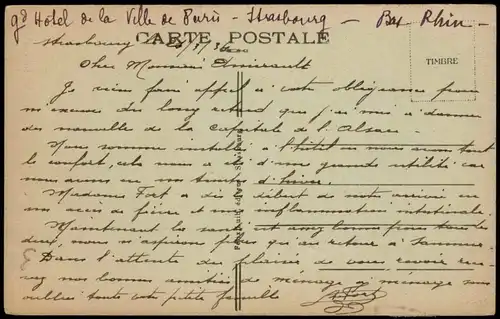 gd Hôtel de la Ville de Paris - Strasbourg - Bas Rhin -
Strasbourg /3/36
CARTE POSTALE
TIMBRE
Cher Monsieur Amirault
Je viens faire appel à votre obligeance pour
m'excuser du long retard que j'ai mis à donner
des nouvelle de la capitale de l'Alsace
Nous somme install à l'hôtel avec tout
le confort, cela nous a été d'un grande utilité car
nous avons eu un d'hiver.
Madame Fort a dès début de notre arrivée eu
accès de fièvre et une inflammation intestinale.
Maintenant la santé est pour tous les
deux, nous n'aspirons plus qu'au retour à Saumur.
Dans l'attente du plaisir de vous revoir rece-
vez nos bonnes amitiés de ménage à ménage sans
oublier toute votre petite famille
Fort